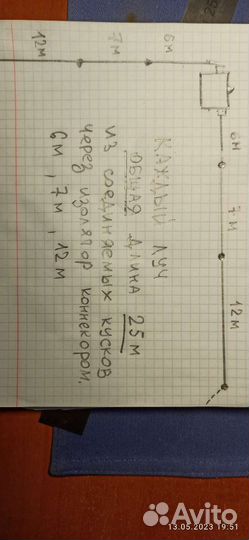 12м 7м 6м
6м 7м 12м
КАЖДЫЙ ЛУЧ
ОБЩАЯ ДЛИНА 25м
ИЗ СОЕДИНЯЕМЫХ КУСКОВ
ЧЕРЕЗ ИЗОЛЯТОР КОННЕКОРОМ.
6м, 7м, 12м
Avito
13.05.2023 19:51